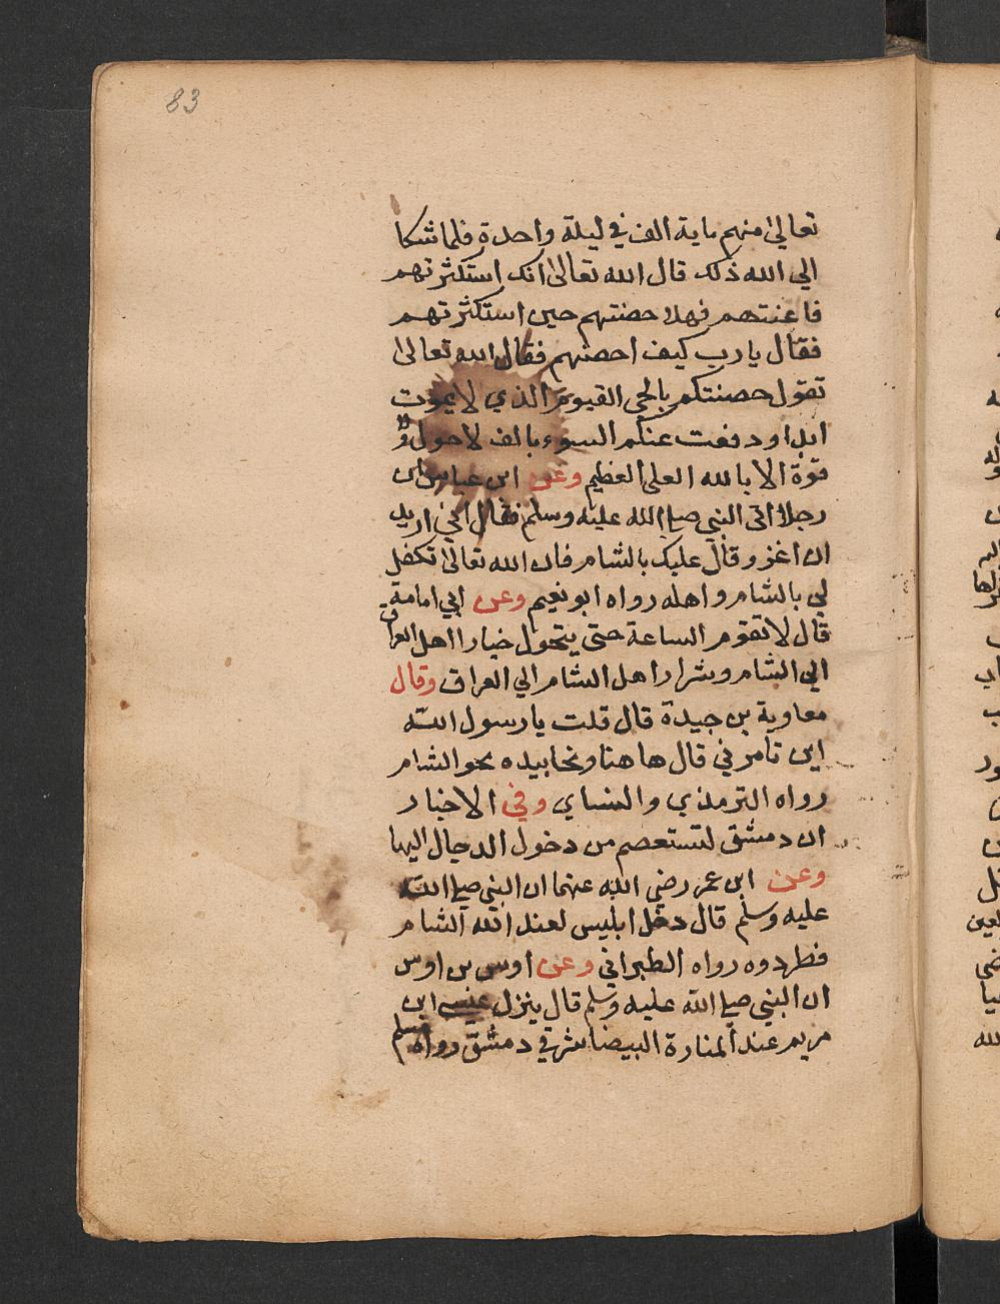 83
تعالى منهم ماية الف في ليلة واحدة فلما شكا
الي الله ذلك قال الله تعالى انك استكثرتهم
فاعنتهم فهلا حصنتهم حين استكثرتهم
فقال يارب كيف احصنهم فقال الله تعالى
تقول حصنتكم بالحي القيوم الذي لا يموت
ابدا ودفعت عنكم السوء بالف لا حول ولا
قوة الا بالله العلي العظيم وعن ابن عباس ان
رجلا اتى النبي صلي الله عليه وسلم فقال اني اريد
ان اغزو قال عليك بالشام فان الله تعالى تكفل
لي بالشام واهله رواه ابو نعيم وعن ابي امامة
قال لا تقوم الساعة حتى يتحول خيار اهل العراق
الي الشام وشرار اهل الشام الي العراق وقال
معاوية بن جيدة قال قلت يا رسول الله
اين تامرني قال هاهنا ونحا بيده نحو الشام
رواه الترمذي والنساي وفي الاخبار
ان دمشق لتستعصم من دخول الدجال اليها
وعن ابن عمر رضي الله عنهما ان النبي صلي الله
عليه وسلم قال دخل ابليس لعنه الله الشام
فطردوه رواه الطبراني وعن اوس بن اوس
ان النبي صلي الله عليه وسلم قال ينزل عيسى ابن
مريم عند المنارة البيضا شرقي دمشق رواه مسلم